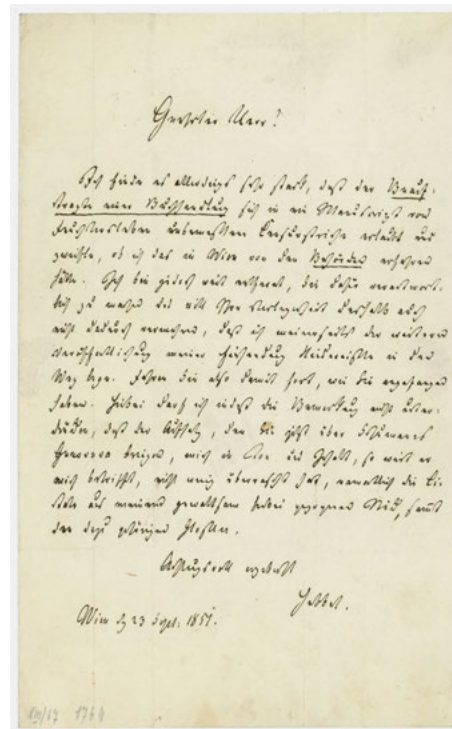 Geehrter Herr!
Ich finde es allerdings sehr stark, daß der Beauf-
tragte einer Buchhandlung sich in ein Manuscript von
Feuchtersleben Censurstriche erlaubt und
zweifle, ob ich das in Wien von den Behörden erfahren
hätte. Ich bin jedoch weit entfernt, Sie dafür verantwort-
lich zu machen und will Ihre Verlegenheit deshalb auch
nicht dadurch vermehren, daß ich meinerseits der weiteren
Veröffentlichung meiner in den
Weg lege. Fahren Sie also damit fort, wie Sie angefangen
haben. Hiebei darf ich indeß die Bemerkung nicht unter-
drücken, daß der Aufsatz, den Sie jetzt über
Genoveva bringen, mich in Ton und Gehalt, so weit er
mich betrifft, nicht wenig überrascht hat, namentlich die Ci-
tate aus meinem gewaltsam herbei gezogenen Stück, sammt
den dazu gehörigen Glossen.
Achtungsvoll ergebenst
Hebbel.
Wien d 23 Sept: 1851.
1764